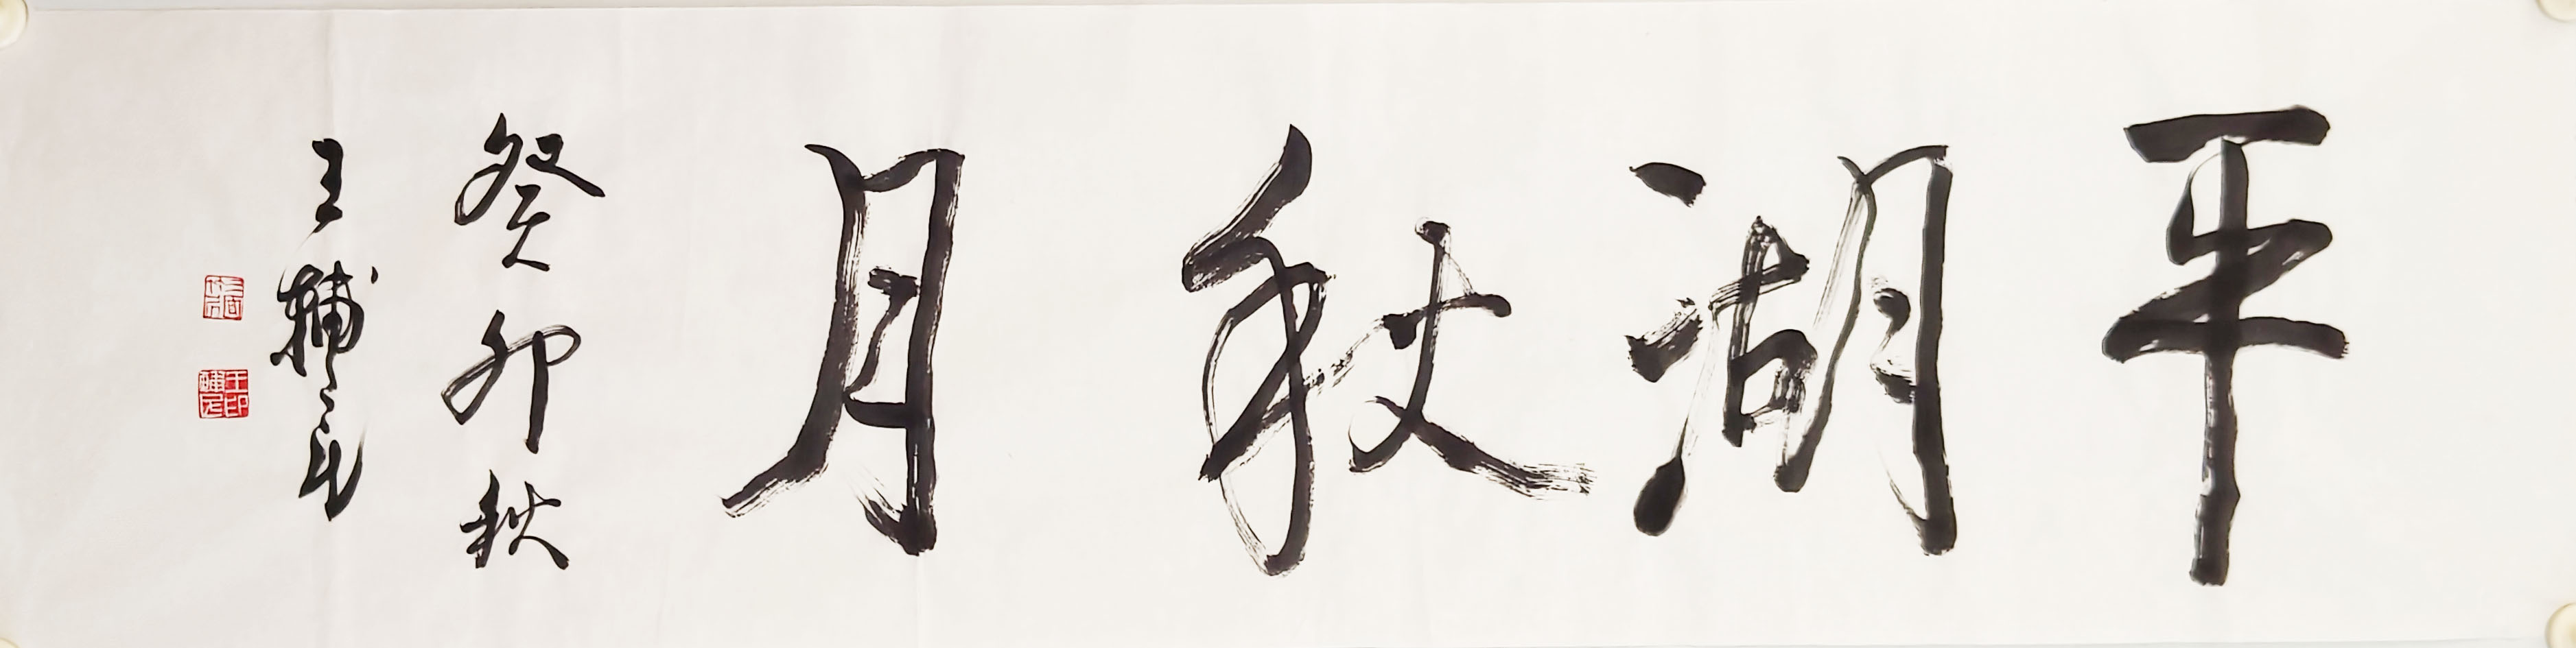 平湖秋月
癸卯秋
王辅民
王印辅民